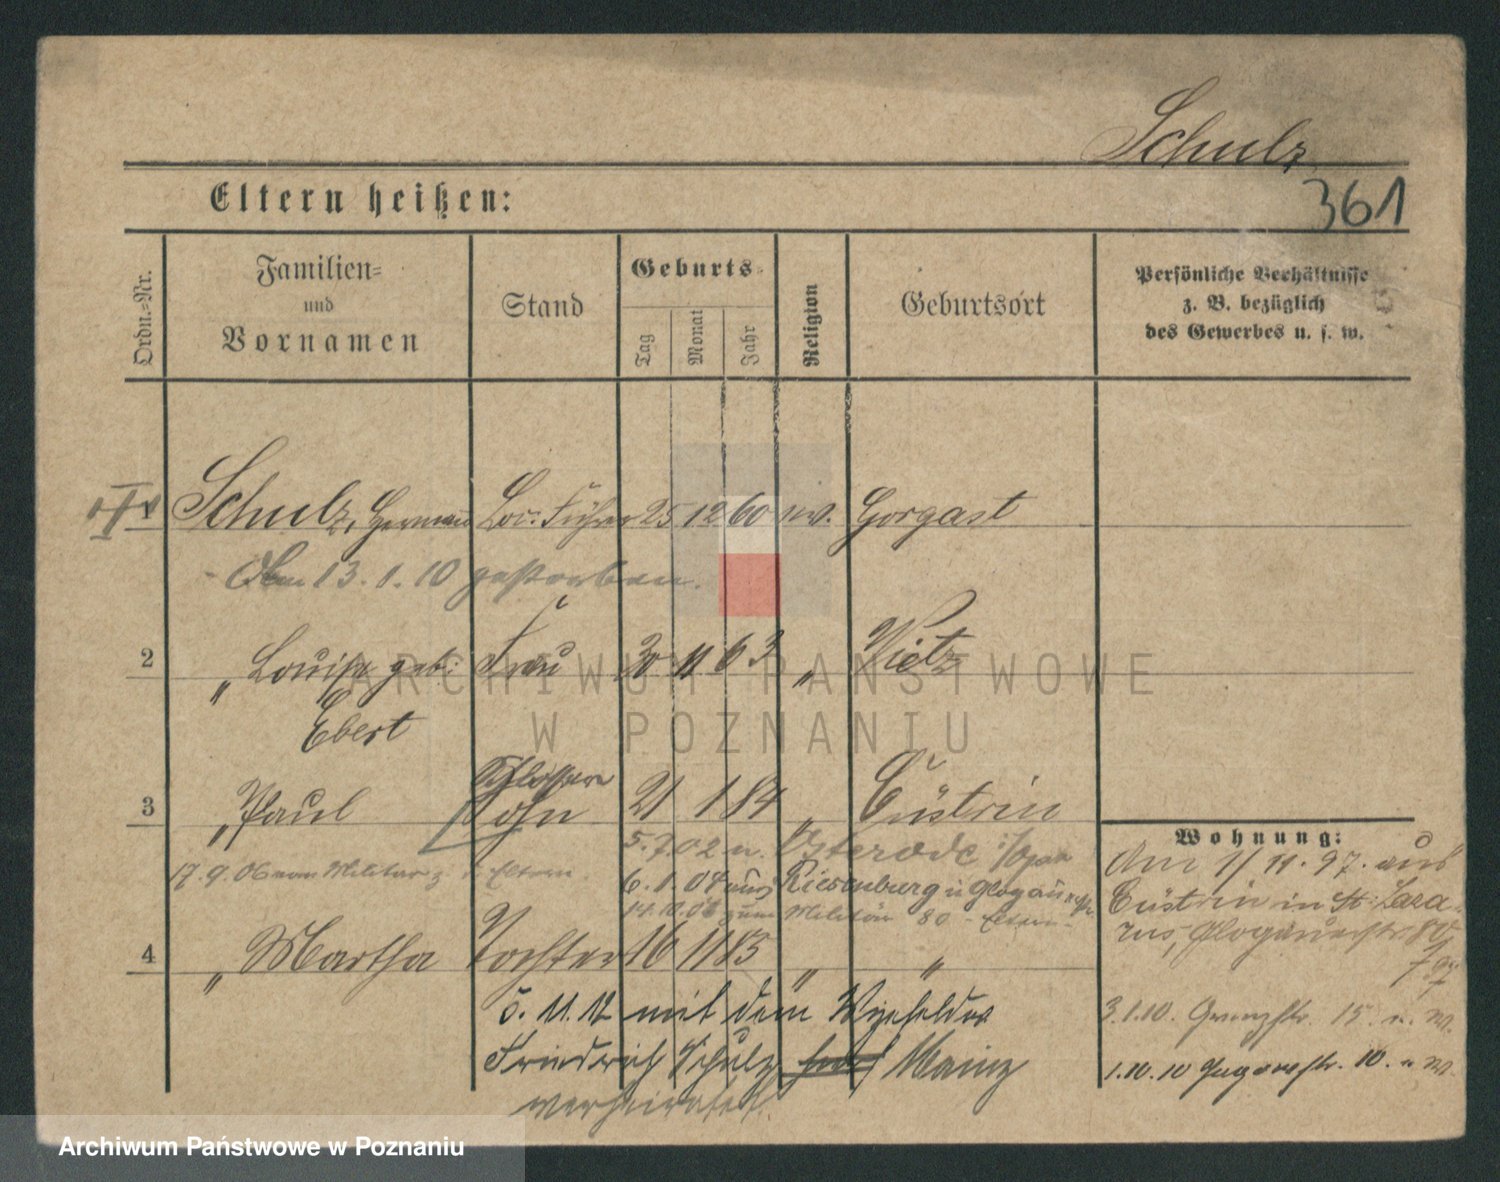 Schulz
Eltern heißen:
361
Ordn.=Nr.
Familien=
und
Vornamen
Stand
Geburts=
Tag
Monat
Jahr
Religion
Geburtsort
Persönliche Verhältnisse
z. B. bezüglich
des Gewerbes u. s. w.
Schulz, Herman Loc. Führer 25 12 60 ev. Gorgast
Am 13. 1. 10 gestorben.
2 " Louise geb: Frau 30 11 63 " Vietz
Ebert
Schlosser
3 " Paul Sohn 21 1 84 " Cüstrin
5. 7. 02 n. Osterode
17. 9. 06 vom Militär z. d. Eltern.
6. 1. 04 aus Riesenburg n Glogau
14. 10. 04 zum Militär 80 - Eltern
4 " Martha Tochter 16 11 85 " "
5. 11. 12 mit dem
Friedrich Schulz Mainz
verheiratet.
Wohnung:
Am 1/11. 97. aus
Cüstrin in St. Laza-
rus, Glogauerstr. 80
97
3.1.10. Grenzstr. 15. n. W.
1.10.10 10. n W.
ARCHIWUM PAŃSTWOWE
W POZNANIU
Archiwum Państwowe w Poznaniu